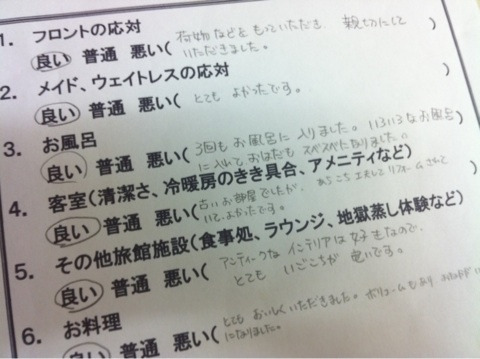 1. フロントの応対
荷物などをもっていただき 親切にして
良い 普通 悪い( いただきました。 )
2. メイド、ウェイトレスの応対
良い 普通 悪い( とても よかったです。 )
3. お風呂
3回も お風呂に 入りました。いろいろなお風呂
良い 普通 悪い( に入れて おはだも スベスベになりました。 )
4. 客室(清潔さ、冷暖房のきき具合、アメニティなど)
古いお部屋でしたが、あちこち工夫してリフォームされて
良い 普通 悪い( いて、よかったです。
5. その他旅館施設(食事処、ラウンジ、地獄蒸し体験など)
アンティークな インテリアは好きなので、
良い 普通 悪い( とても いごこちが 良いです。
6. お料理
とても おいしく いただきました。ボリュームもあり
良い 普通 悪い( になりました。